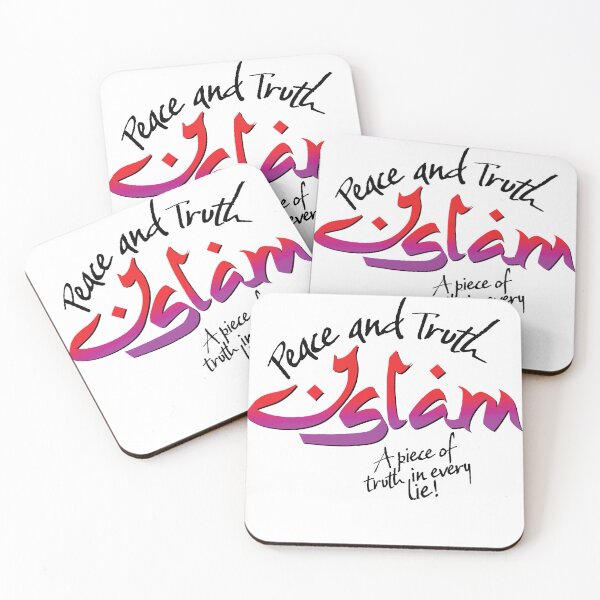 Peace and Truth
Islam
piece of
Peace and Truth
Islam
A piece of
in every
Peace and Truth
Islam
A piece
truth in
Peace and Truth
Islam
A piece of
truth in every
lie!